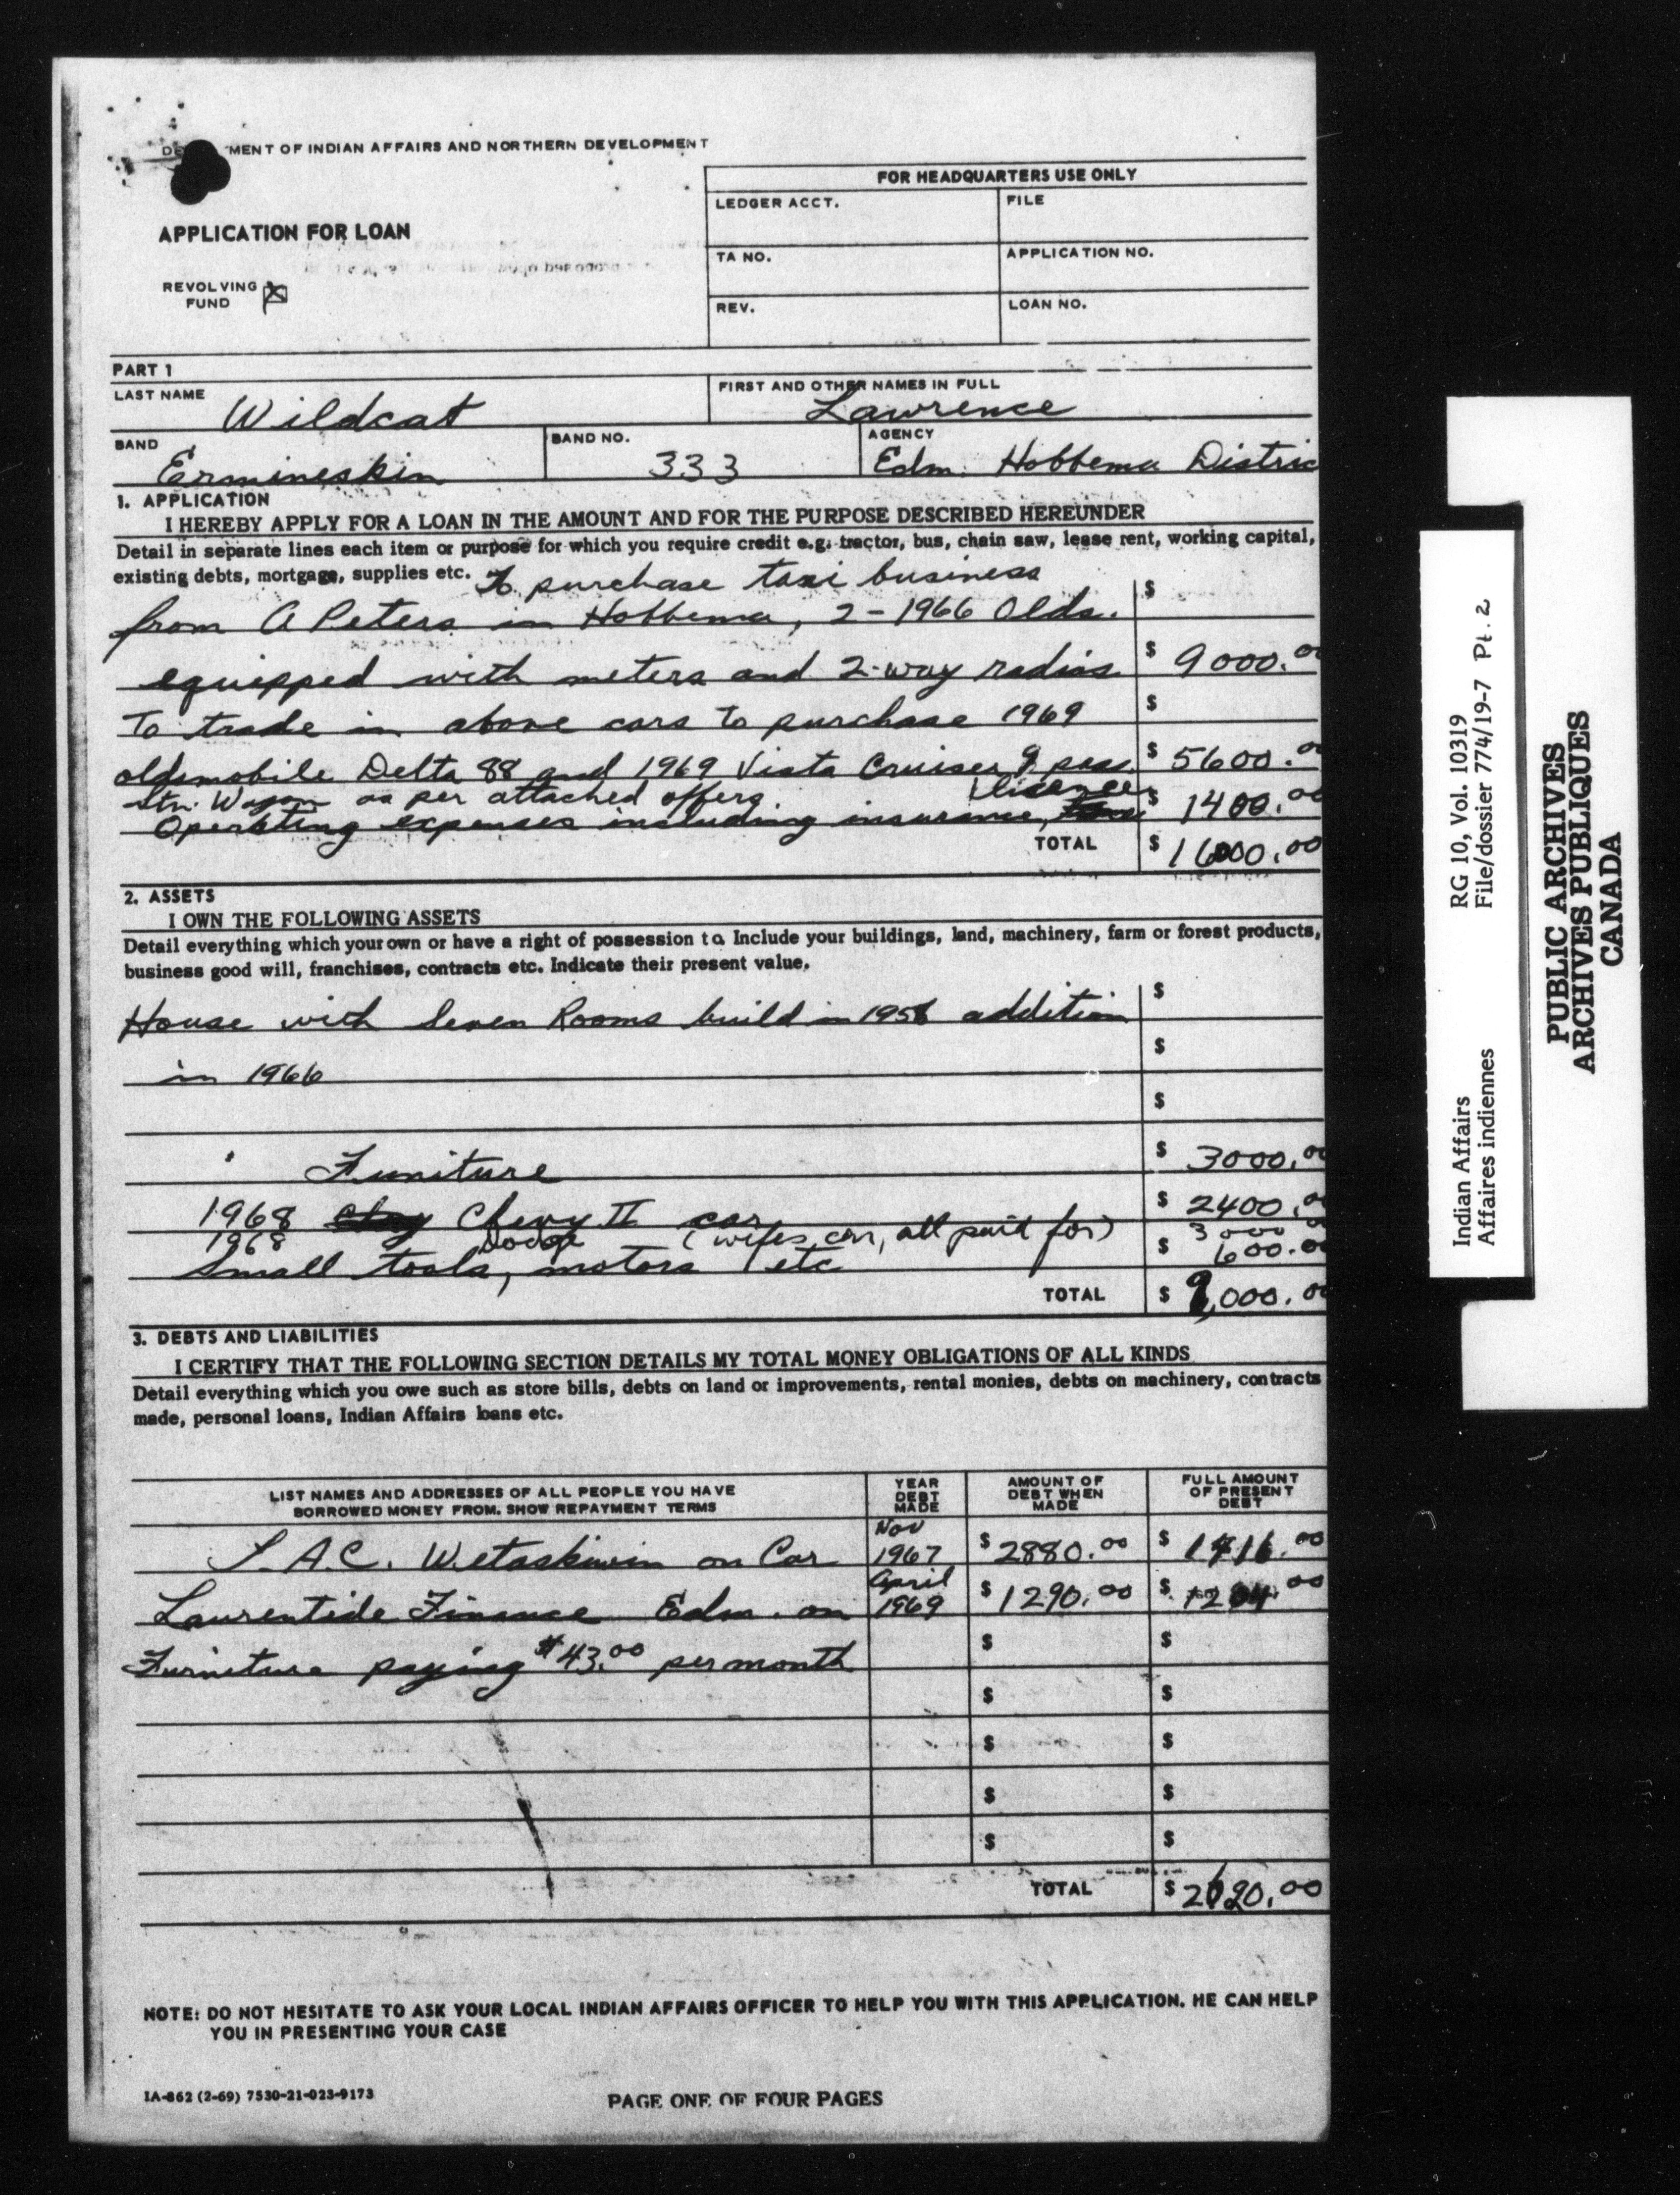 MENT OF INDIAN AFFAIRS AND NORTHERN DEVELOPMENT
FOR HEADQUARTERS USE ONLY
LEDGER ACCT. FILE
APPLICATION FOR LOAN
TA NO. APPLICATION NO.
REVOLVING
FUND
REV. LOAN NO.
PART 1
LAST NAME Wildcat FIRST AND OTHER NAMES IN FULL Lawrence
BAND Ermineskin BAND NO. 333 AGENCY Edm. Hobbema Distric
1. APPLICATION
I HEREBY APPLY FOR A LOAN IN THE AMOUNT AND FOR THE PURPOSE DESCRIBED HEREUNDER
Detail in separate lines each item or purpose for which you require credit e.g. tractor, bus, chain saw, lease rent, working capital,
existing debts, mortgage, supplies etc. To purchase taxi business $
from A Peters in Hobbema, 2 - 1966 Olds.
equipped with meters and 2-way radios $ 9000.00
To trade in above cars to purchase 1969 $
oldsmobile Delta 88 and 1969 Vista Cruiser 9 pass. $ 5600.00
Stn. Wagon as per attached offers. licences
Operating expenses including insurance, $ 1400.00
TOTAL $ 16000.00
2. ASSETS
I OWN THE FOLLOWING ASSETS
Detail everything which your own or have a right of possession to. Include your buildings, land, machinery, farm or forest products,
business good will, franchises, contracts etc. Indicate their present value.
House with Seven Rooms build in 1958 addition $
in 1966 $
$
Funiture $ 3000.00
1968 Chevy II car $ 2400.00
1968 Dodge (wifes car, all paid for) 3000 00
Small tools, motors etc $ 600.00
TOTAL $ 9,000.00
3. DEBTS AND LIABILITIES
I CERTIFY THAT THE FOLLOWING SECTION DETAILS MY TOTAL MONEY OBLIGATIONS OF ALL KINDS
Detail everything which you owe such as store bills, debts on land or improvements, rental monies, debts on machinery, contracts
made, personal loans, Indian Affairs loans etc.
LIST NAMES AND ADDRESSES OF ALL PEOPLE YOU HAVE
BORROWED MONEY FROM. SHOW REPAYMENT TERMS
YEAR
DEBT
MADE
AMOUNT OF
DEBT WHEN
MADE
FULL AMOUNT
OF PRESENT
DEBT
Nov
I.A.C. Wetaskiwin on Car 1967 $ 2880.00 $
April
Laurentide Finance Edm. on 1969 $ 1290.00 $ 1204 00
Furniture paying $43.00 per month $ $
$ $
$ $
$ $
$ $
TOTAL $
NOTE: DO NOT HESITATE TO ASK YOUR LOCAL INDIAN AFFAIRS OFFICER TO HELP YOU WITH THIS APPLICATION. HE CAN HELP
YOU IN PRESENTING YOUR CASE
IA-862 (2-69) 7530-21-023-9173
PAGE ONE OF FOUR PAGES
Indian Affairs RG 10, Vol. 10319
Affaires indiennes File/dossier 774/19-7 Pt. 2
PUBLIC ARCHIVES
ARCHIVES PUBLIQUES
CANADA